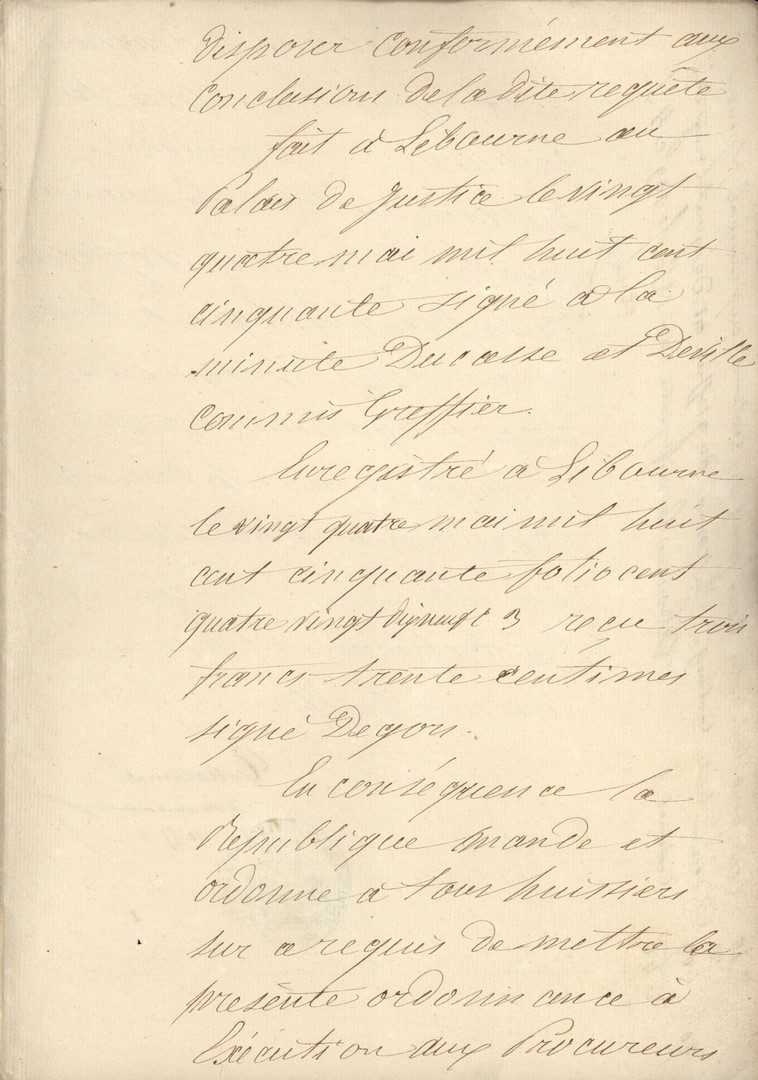 disposer conformément aux
conclusions de la dite requête
fait à Libourne au
Palais de justice le vingt
quatre mai mil huit cent
cinquante signé a la
minute Ducasse et Deville
commis Greffier.
Enregistré à Libourne
le vingt quatre mai mil huit
cent cinquante folio cent
quatre vingt dix neuf c 3 reçu trois
francs trente centimes
signé Degors.
En conséquence la
République mande et
ordonne a tous huissiers
sur ce requis de mettre la
présente ordonnance à
Exécution aux Procureurs